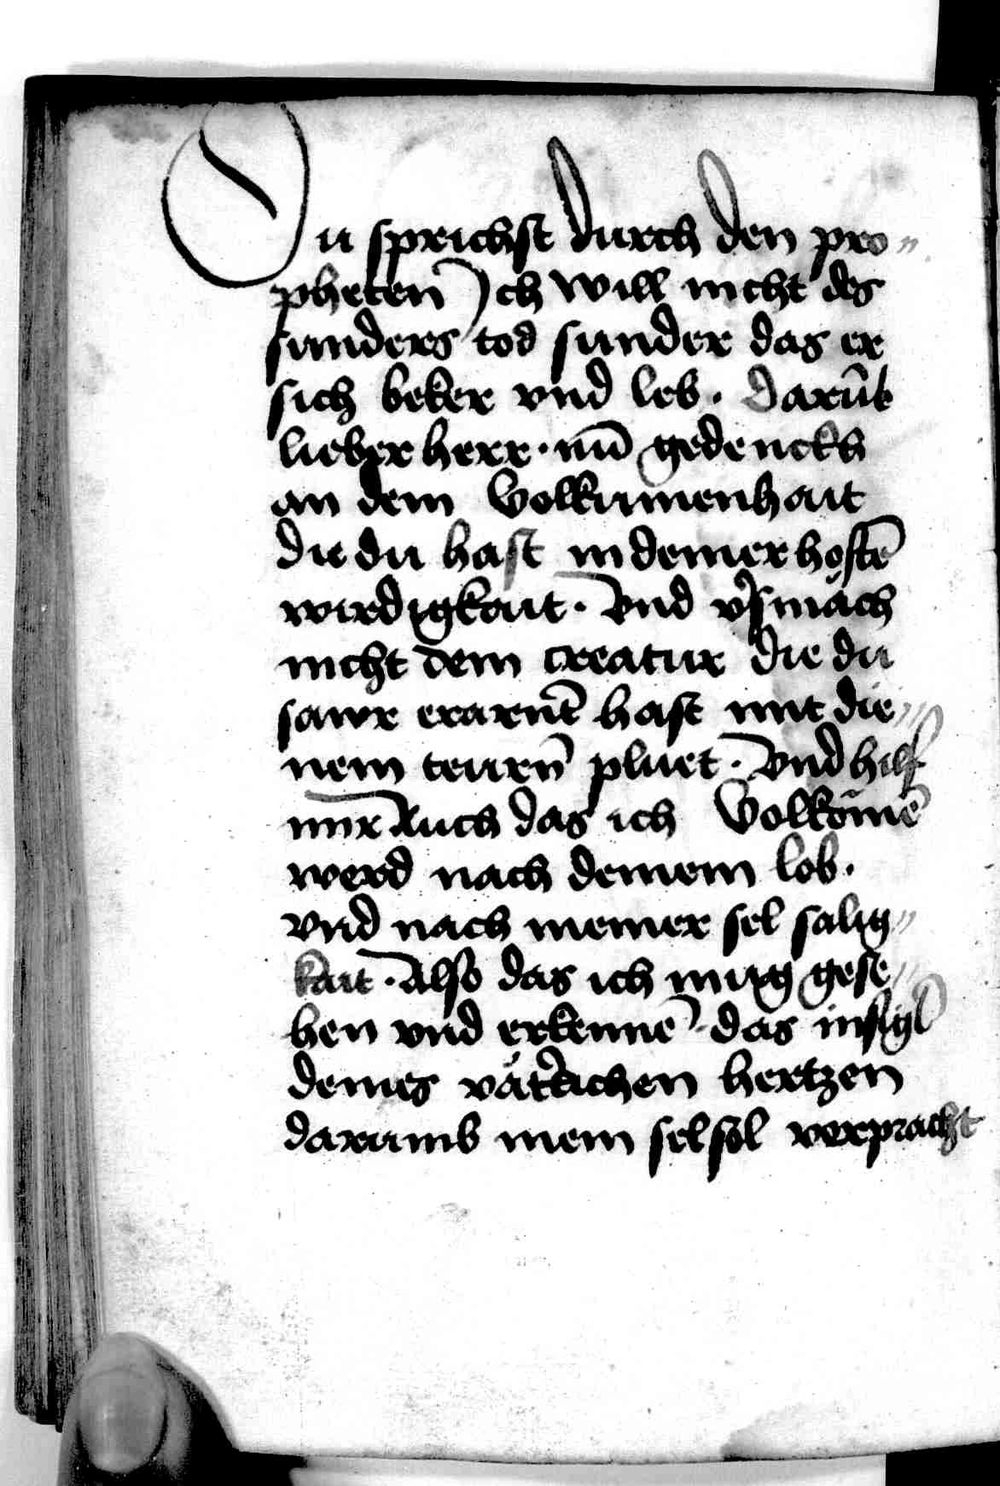 Du sprichst durch den pro„
pheten Ich will nicht des
sunders tod sunder das er
sich beker vnd leb. Darūb
lieber herr. nū gedenckh
an dein Volkumenhait
die du hast in deiner hostē
wirdigkait. Vnd v̓smäch
nicht dein creatur die du
sawr erarnt̄ hast mit die„
nem teurn̄ pluet. Vnd hilf
mir Auch das ich Volkōmē
werd nach deinem lob.
vnd nach meiner sel sälig„
kait. Also das ich mug gese„
hen vnd erkennē das insigl
deines vät̓lichen hertzen
darumb mein sel sol verpracht